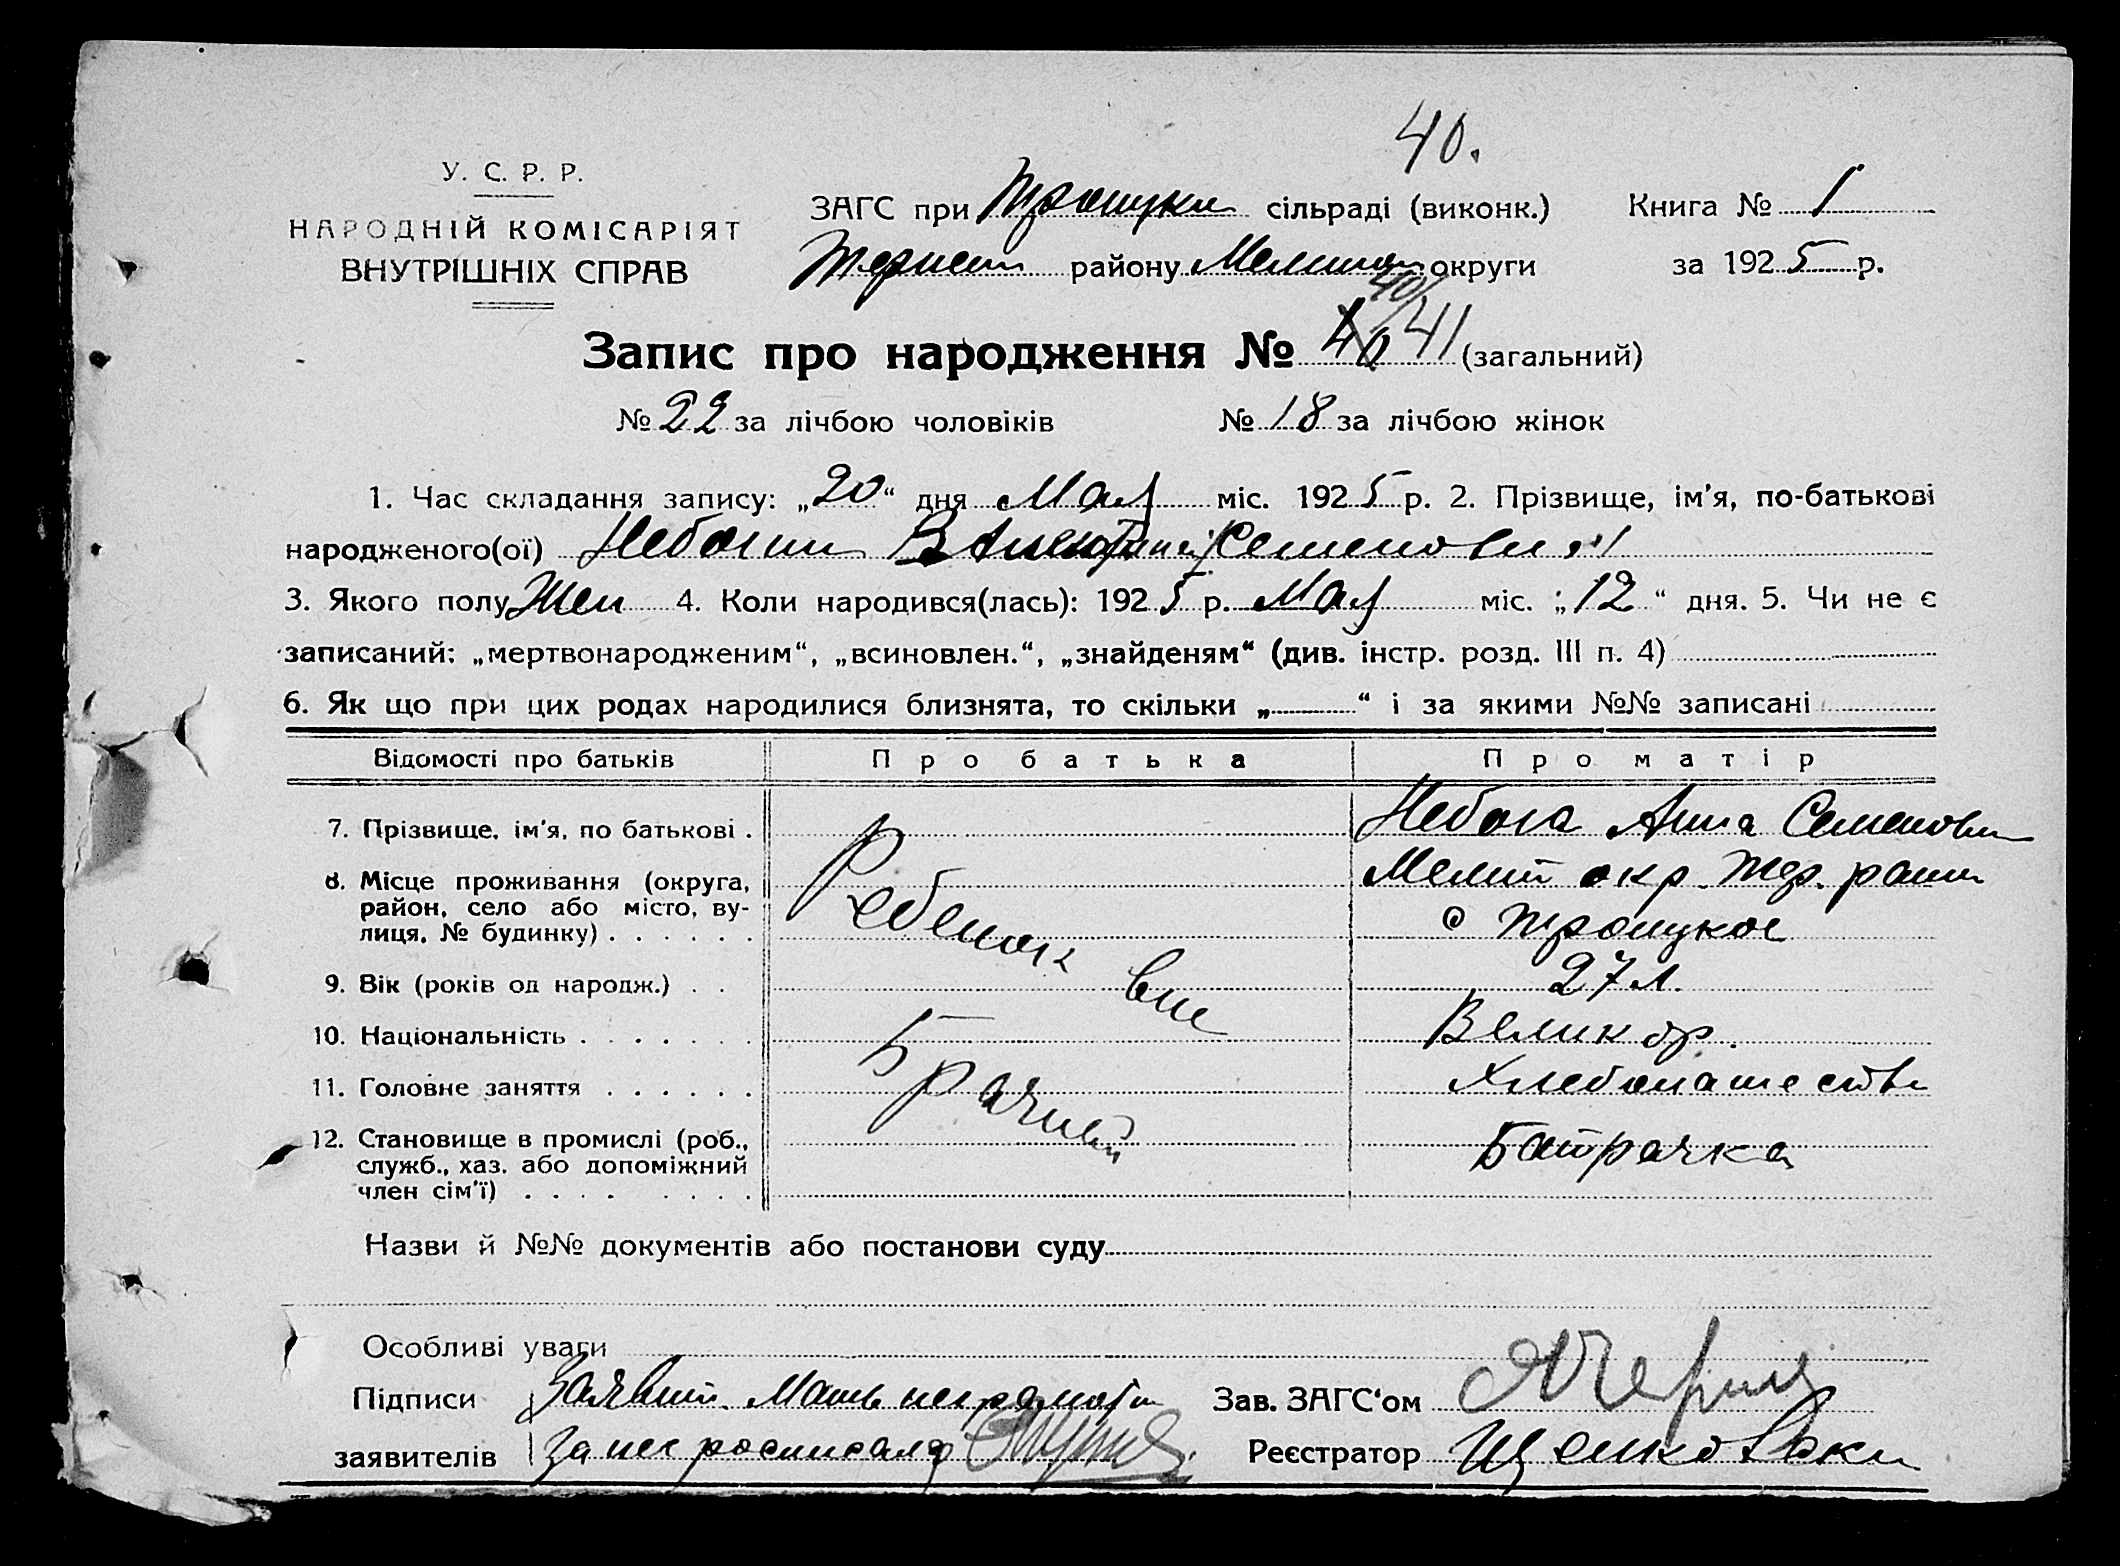 40.
У. С. Р. Р.
НАРОДНІЙ КОМІСАРІЯТ
ВНУТРІШНІХ СПРАВ
ЗАГС при Троицки сільраді (виконк.) Книга № 1
району округи за 1925 р.
40/
Запис про народження № 40 41 (загальний)
№ 22 за лічбою чоловіків № 18 за лічбою жінок
1. Час складання запису: „20“ дня Мая міс. 1925 р. 2. Прізвище, ім'я, по-батькові
народженого(ої) Семенови
3. Якого полу Жен 4. Коли народився(лась): 1925 р. Мая міс. „12“ дня. 5. Чи не є
записаний: „мертвонародженим“, „всиновлен.“, „знайденям“ (див. інстр. розд. III п. 4)
6. Як що при цих родах народилися близнята, то скільки „ “ і за якими №№ записані
Відомості про батьків Про батька Про матір
7. Прізвище, ім'я, по батькові . Небога Анна Семеновн
8. Місце проживання (округа, район, село або місто, вулиця, № будинку) . . . . . . Мелит окр. Тер. раион
с Троицкое
9. Вік (років од народж.) . . 27 л.
10. Національність . . . . . . . Великор.
11. Головне заняття . . . . . . Хлебопашеств
12. Становище в промислі (роб., служб., хаз. або допоміжний член сім'ї) . . . . . . . . Батрачка
Ребенок вне
Брачный
Назви й №№ документів або постанови суду
Особливі уваги
Підписи Заявит. Мать неграмотн Зав. ЗАГС'ом
заявителів за нее росписался Реєстратор